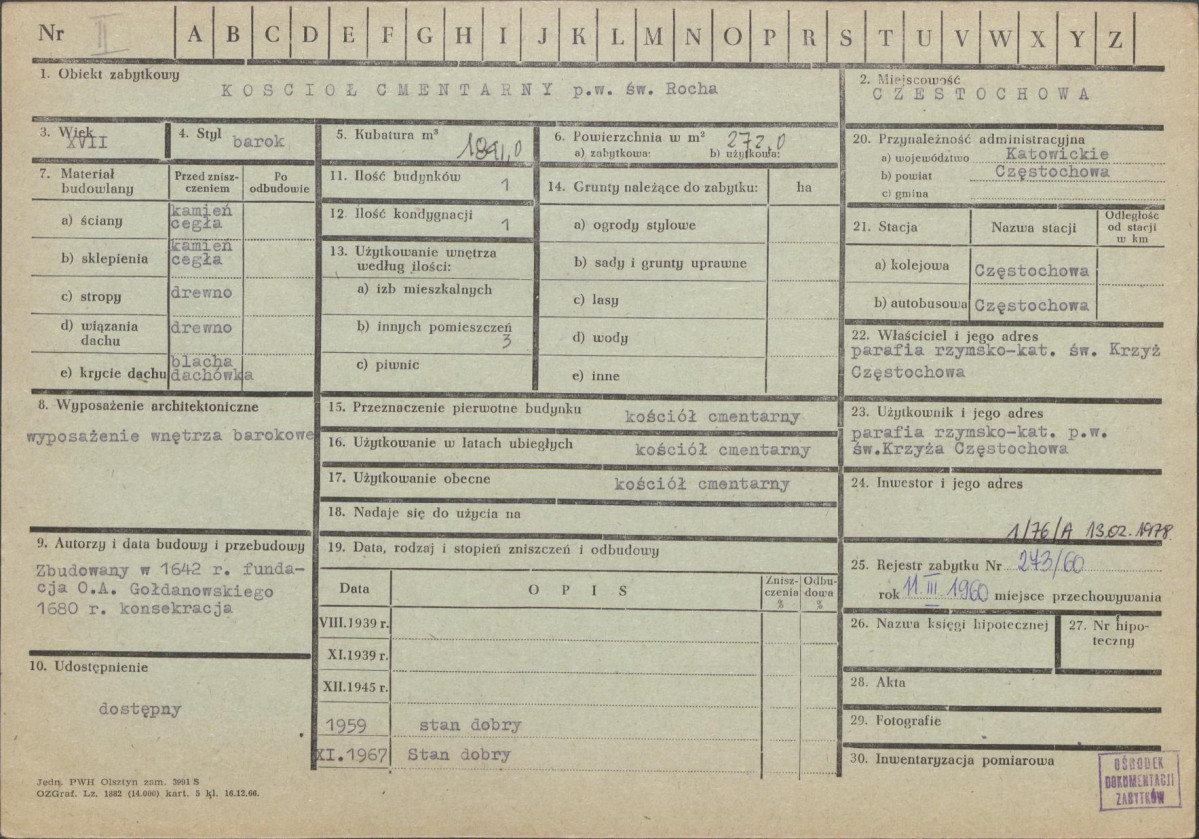 Nr II A B C D E F G H I J K L M N O P R S T U V W X Y Z
1. Obiekt zabytkowy
KOSCIOŁ CMENTARNY p.w. św. Rocha
2. Miejscowość
CZESTOCHOWA
3. Wiek
XVII
4. Styl
barok
5. Kubatura m³
6. Powierzchnia w m² 272,0
a) zabytkowa: b) użytkowa:
7. Materiał budowlany
Przed znisz-
czeniem
Po
odbudowie
a) ściany
kamień
cegła
b) sklepienia
kamień
cegła
c) stropy drewno
d) wiązania
dachu
drewno
e) krycie dachu
blacha
dachówka
8. Wyposażenie architektoniczne
wyposażenie wnętrza barokowe
9. Autorzy i data budowy i przebudowy
Zbudowany w 1642 r. funda-
cja O.A. Gołdanowskiego
1680 r. konsekracja
10. Udostępnienie
dostępny
11. Ilość budynków 1
12. Ilość kondygnacji 1
13. Użytkowanie wnętrza
według ilości:
a) izb mieszkalnych
b) innych pomieszczeń
3
c) piwnic
14. Grunty należące do zabytku: ha
a) ogrody stylowe
b) sady i grunty uprawne
c) lasy
d) wody
e) inne
15. Przeznaczenie pierwotne budynku kościół cmentarny
16. Użytkowanie w latach ubiegłych kościół cmentarny
17. Użytkowanie obecne kościół cmentarny
18. Nadaje się do użycia na
19. Data, rodzaj i stopień zniszczeń i odbudowy
Data OPIS
Znisz-
czenia
%
Odbu-
dowa
%
VIII.1939 r.
XI.1939 r.
XII.1945 r.
1959 stan dobry
XI.1967 Stan dobry
20. Przynależność administracyjna
a) województwo Katowickie
b) powiat Częstochowa
c) gmina
21. Stacja Nazwa stacji
Odległość
od stacji
w km
a) kolejowa Częstochowa
b) autobusowa Częstochowa
22. Właściciel i jego adres
parafia rzymsko-kat. św. Krzyż
Częstochowa
23. Użytkownik i jego adres
parafia rzymsko-kat. p.w.
św.Krzyża Częstochowa
24. Inwestor i jego adres
1/76/A 13.02.1978
25. Rejestr zabytku Nr 273/60
rok 11 III 1960 miejsce przechowywania
26. Nazwa księgi hipotecznej
27. Nr hipo-
teczny
28. Akta
29. Fotografie
30. Inwentaryzacja pomiarowa
OŚRODEK
DOKUMENTACJI
ZABYTKÓW
Jedn. PWH Olsztyn zam. 3991 S
OZGraf. Lz. 1682 (14.000) kart. 5 kl. 16.12.66.